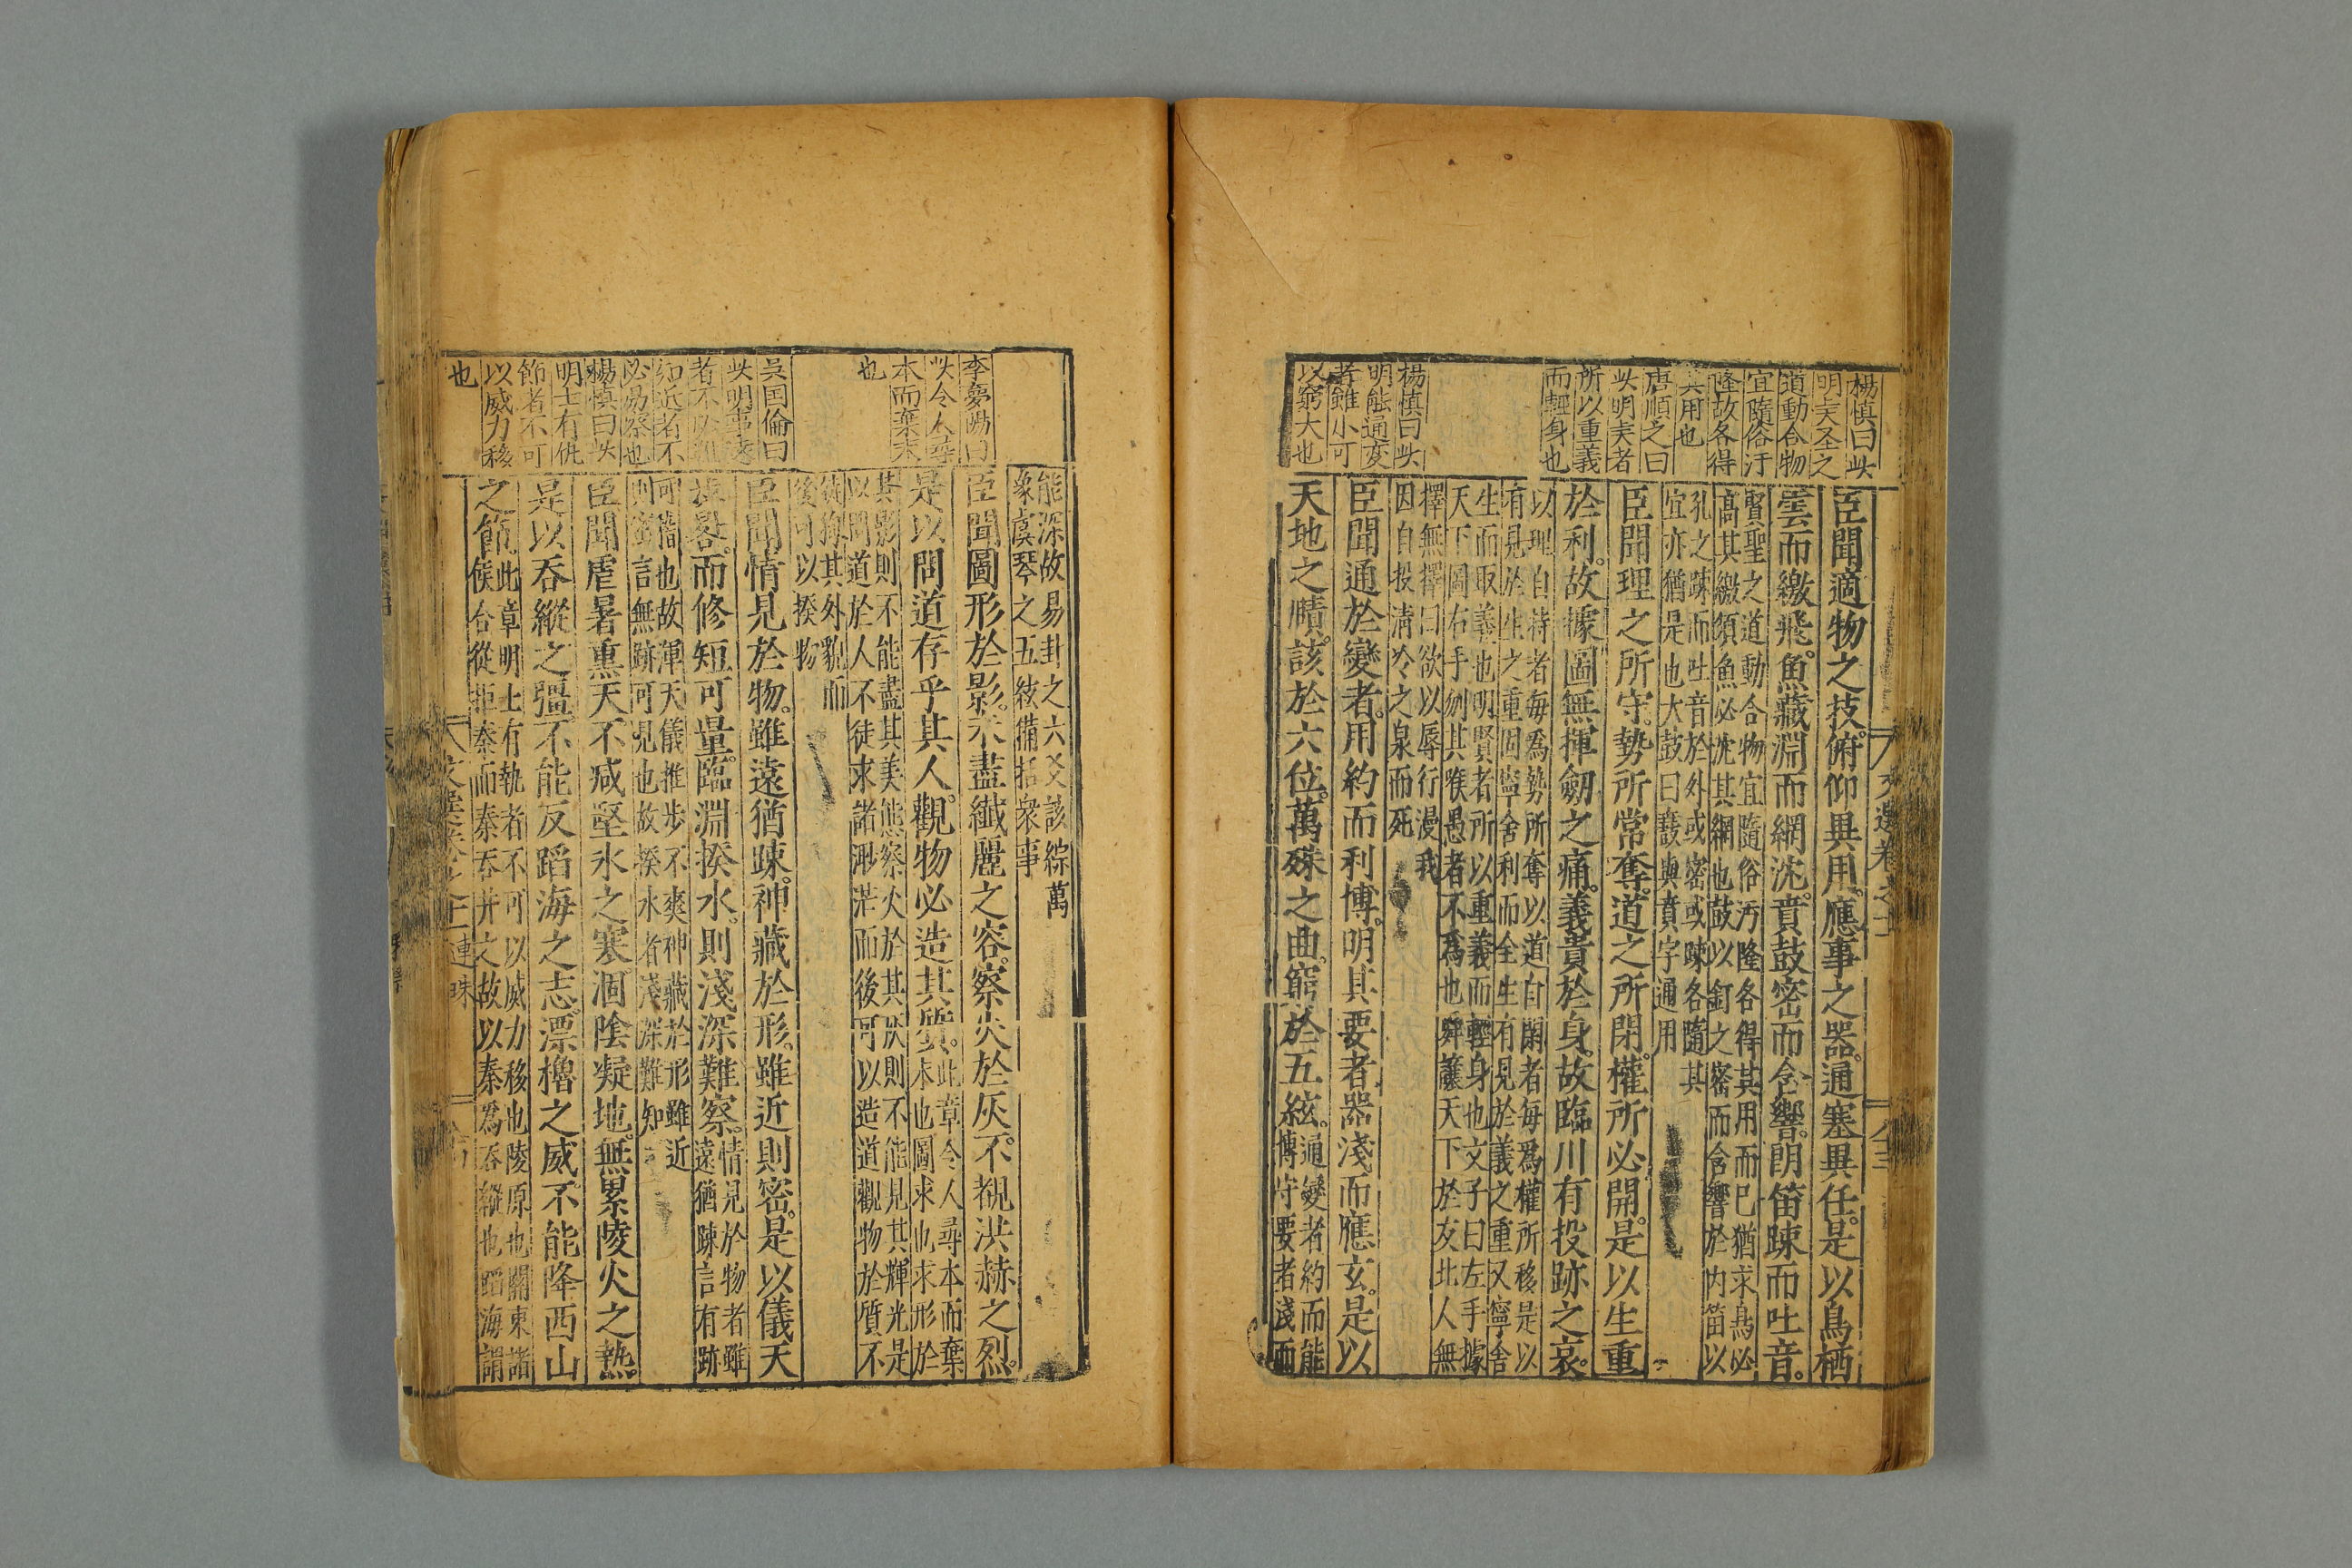 楊慎曰此
明夫圣之
道動合物
宜隨俗汙
隆故各得
其用也
唐順之曰
此明夫者
所以重義
而輕身也
楊慎曰此
明能通変
者雖小可
以窮大也
臣聞適物之技。俯仰異用。應事之器。通塞異任。是以鳥栖
雲而繳飛。魚藏淵而網沈。賁鼓密而含響。朗笛踈而吐音。
賢聖之道動合物宜隨俗汚隆各得其用而已猶求鳥必
高其繳須魚必沈其網也鼓以釘之密而含響於内笛以
孔之踈而吐音於外或密或踈各隨其
宜亦猶是也大鼓曰鼖與賁字通用
臣聞理之所守。勢所常奪。道之所閉。權所必開。是以生重
於利。故據圖無揮劒之痛。義貴於身。故臨川有投跡之哀。
以理自持者每爲勢所奪以道自閉者每爲權所移是以
有見於生之重固寧舍利而全生有見於義之重又寧舍
生而取義也明賢者所以重義而輕身也文子曰左手據
天下圖右手刎其喉愚者不爲也舜讓天下於友北人無
擇無擇曰欲以辱行漫我
因自投清泠之泉而死
臣聞通於變者。用約而利博。明其要者。器淺而應玄。是以
天地之賾。該於六位。萬殊之曲。窮於五絃。
通變者約而能
博守要者淺而
文選卷之十
李夢陽曰
此令人尋
本而棄末
也
吳国倫曰
此明事遠
者不必難
知近者不
必易察也
楊慎曰此
明士有執
節者不可
以威力移
也
能深故易卦之六爻該綜萬
象虞琴之五絃備括衆事
臣聞圖形於影。未盡纖麗之容。察火於灰。不覩洪赫之烈。
是以問道存乎其人。觀物必造其質。
此章令人尋本而棄
末也圖求也求形於
其影則不能盡其美態察火於其灰則不能見其輝光是
以問道於人不徒求諸渺茫而後可以造道觀物於質不
徒狥其外貌而
後可以揆物
臣聞情見於物。雖遠猶踈。神藏於形。雖近則密。是以儀天
歩晷。而修短可量。臨淵揆水。則淺深難察。
情見於物者雖
遠猶踈言有跡
可循也故渾天儀推步不爽神藏於形雖近
則密言無跡可見也故揆水者淺深難知
臣聞虐暑熏天不減堅氷之寒。涸陰凝地。無累陵火之熱。
是以吞縱之彊不能反蹈海之志。漂櫓之威。不能降西山
之節。
此章明士有執者不可以威力移也陵原也關東諸
侯合從拒秦而秦吞并之故以秦爲吞縱也蹈海謂
連珠